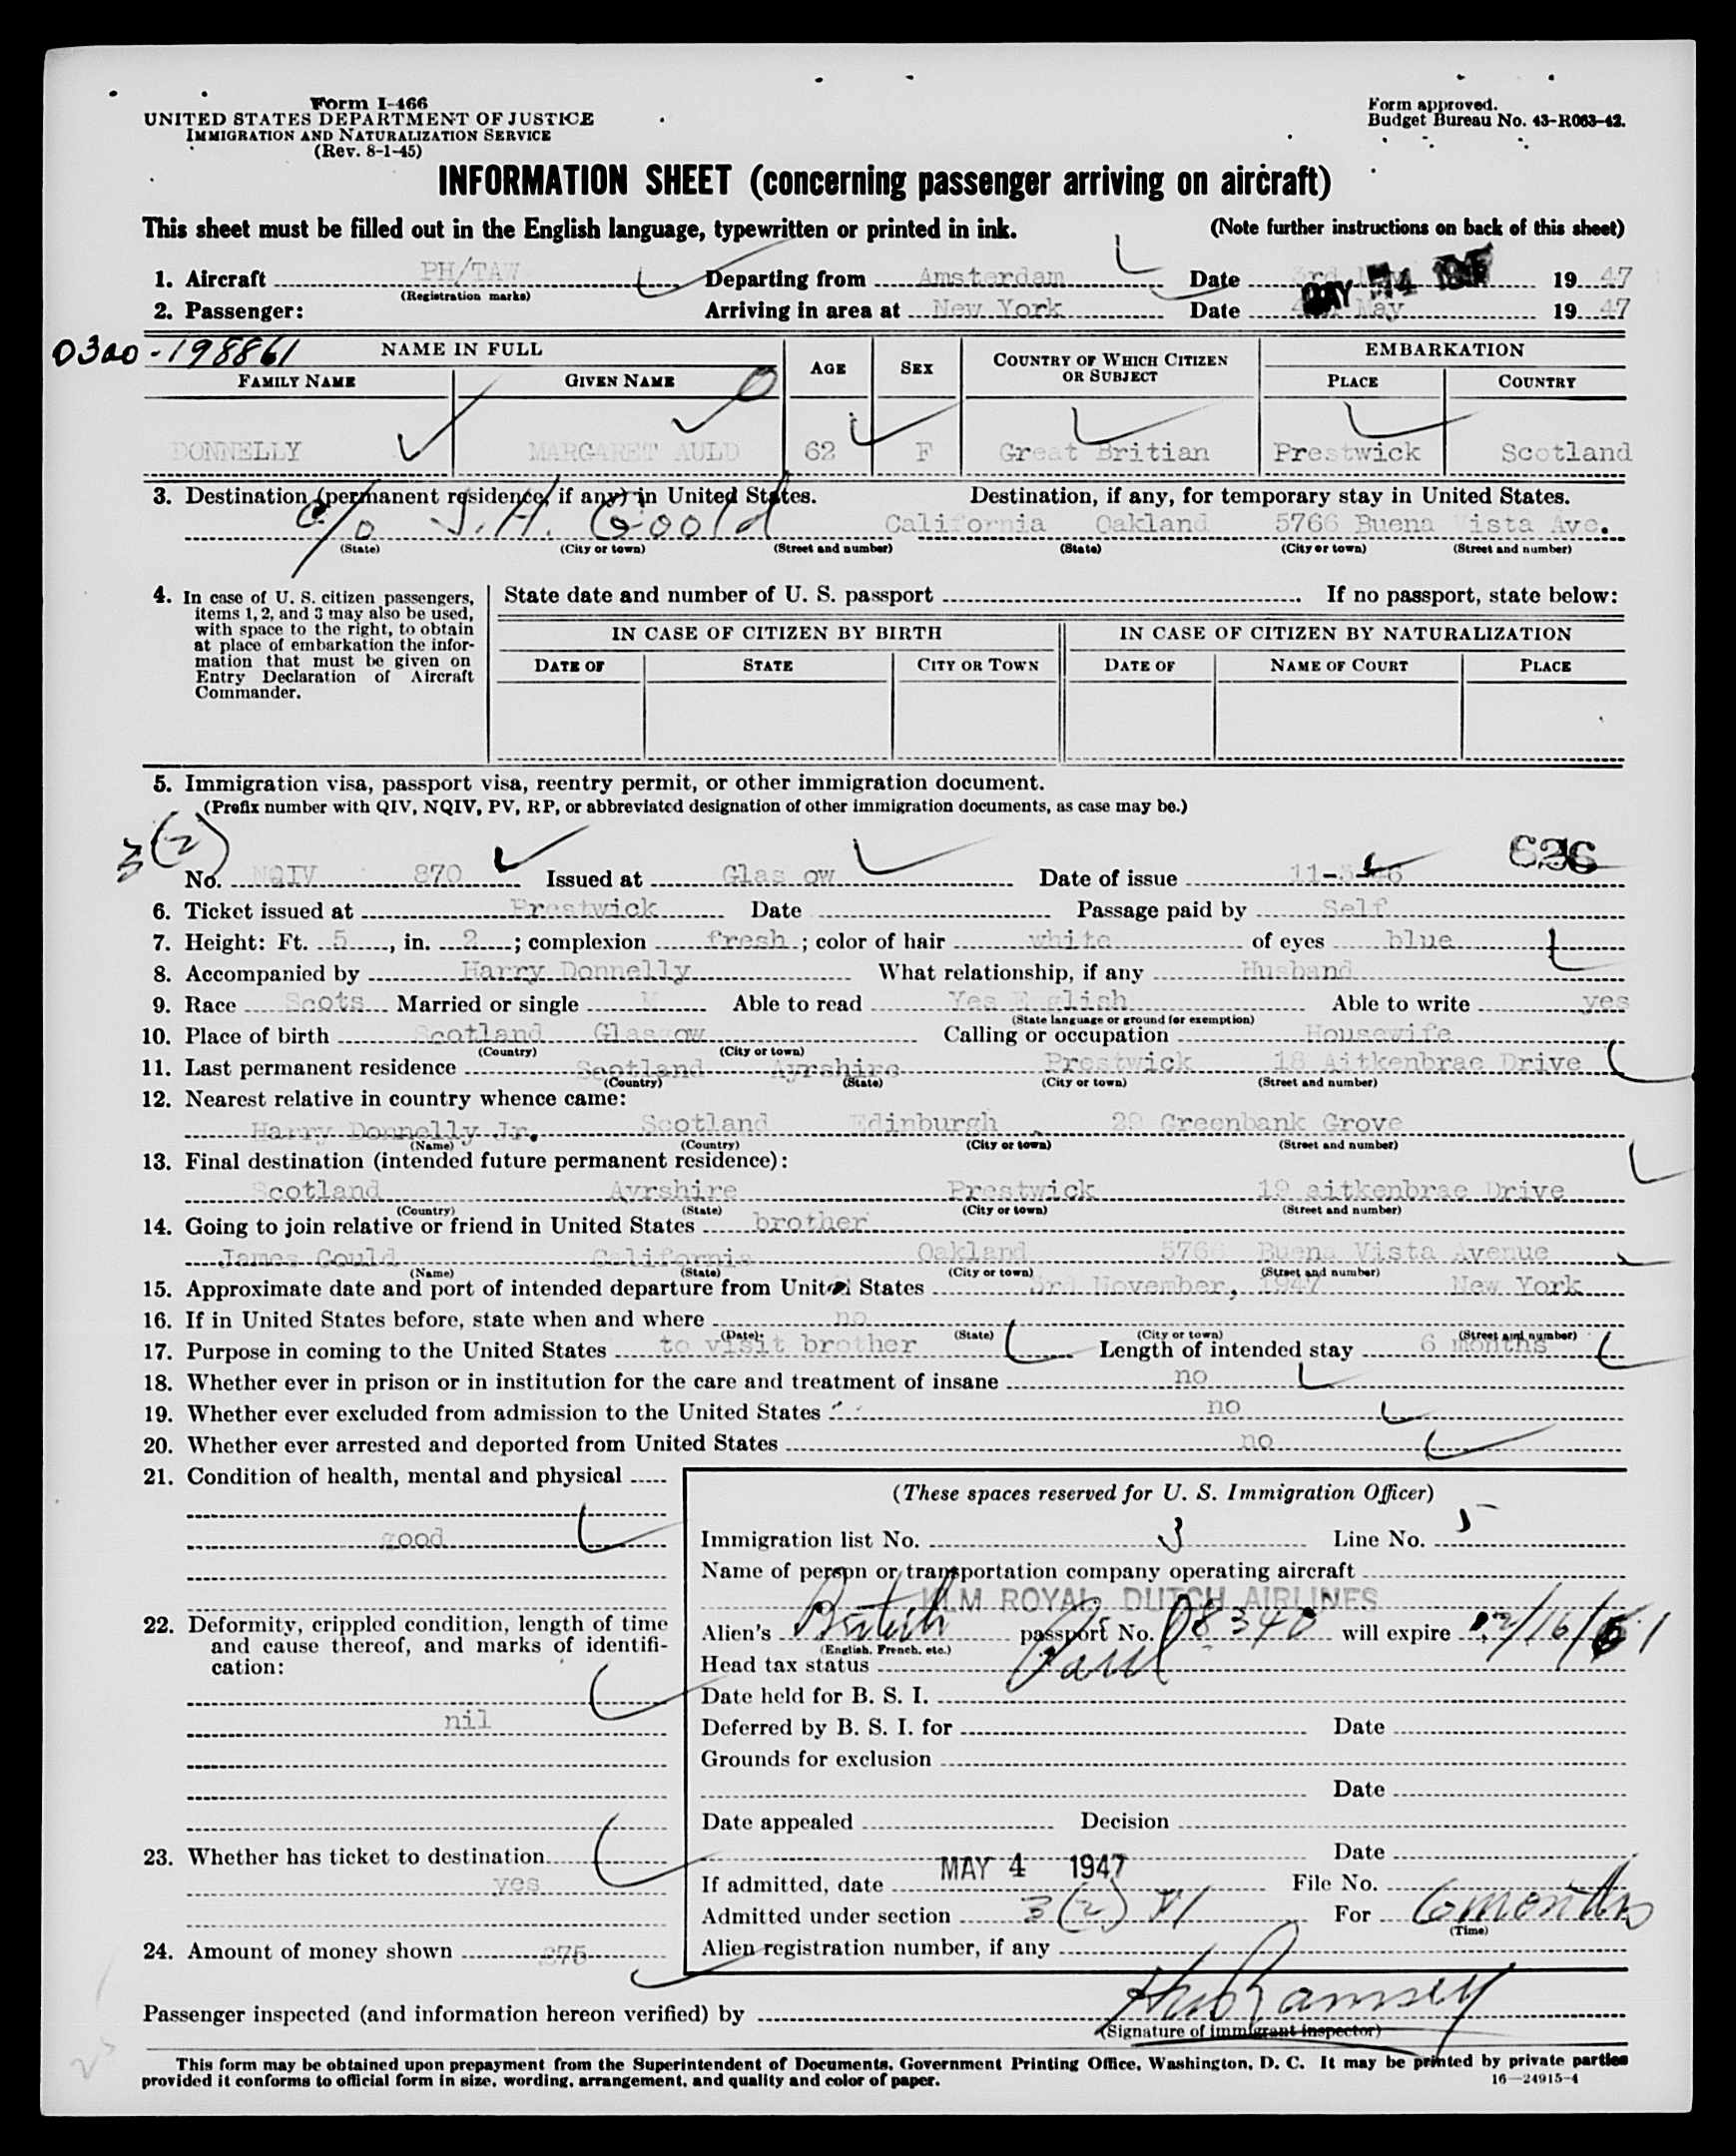 Form I-466
UNITED STATES DEPARTMENT OF JUSTICE
IMMIGRATION AND NATURALIZATION SERVICE
(Rev. 8-1-45)
Form approved.
Budget Bureau No. 43-R063-42.
INFORMATION SHEET (concerning passenger arriving on aircraft)
This sheet must be filled out in the English language, typewritten or printed in ink. (Note further instructions on back of this sheet)
1. Aircraft PH/TAW Departing from Amsterdam Date 3rd May 1947
(Registration marks)
2. Passenger: Arriving in area at New York Date May 1947
0300-198861 NAME IN FULL AGE SEX COUNTRY OF WHICH CITIZEN OR SUBJECT EMBARKATION
FAMILY NAME GIVEN NAME PLACE COUNTRY
DONNELLY MARGARET AULD 62 F Great Britian Prestwick Scotland
3. Destination (permanent residence, if any) in United States. Destination, if any, for temporary stay in United States.
c/o J.H. Goold California Oakland 5766 Buena Vista Ave.
(State) (City or town) (Street and number) (State) (City or town) (Street and number)
4. In case of U. S. citizen passengers, items 1, 2, and 3 may also be used, with space to the right, to obtain at place of embarkation the information that must be given on Entry Declaration of Aircraft Commander.
State date and number of U. S. passport . If no passport, state below:
IN CASE OF CITIZEN BY BIRTH IN CASE OF CITIZEN BY NATURALIZATION
DATE OF STATE CITY OR TOWN DATE OF NAME OF COURT PLACE
5. Immigration visa, passport visa, reentry permit, or other immigration document.
(Prefix number with QIV, NQIV, PV, RP, or abbreviated designation of other immigration documents, as case may be.)
3(2) 626
No. NQIV 870 Issued at Glasgow Date of issue 11-3-46
6. Ticket issued at Prestwick Date Passage paid by Self
7. Height: Ft. 5, in. 2; complexion fresh; color of hair white of eyes blue
8. Accompanied by Harry Donnelly What relationship, if any Husband
9. Race Scots Married or single M Able to read Yes English Able to write yes
(State language or ground for exemption)
10. Place of birth Scotland Glasgow Calling or occupation Housewife
(Country) (City or town)
11. Last permanent residence Scotland Ayrshire Prestwick 18 Aitkenbrae Drive
(Country) (State) (City or town) (Street and number)
12. Nearest relative in country whence came:
Harry Donnelly Jr. Scotland Edinburgh 29 Greenbank Grove
(Name) (Country) (City or town) (Street and number)
13. Final destination (intended future permanent residence):
Scotland Ayrshire Prestwick 19 aitkenbrae Drive
(Country) (State) (City or town) (Street and number)
14. Going to join relative or friend in United States brother
James Gould California Oakland 5766 Buena Vista Avenue
(Name) (State) (City or town) (Street and number)
15. Approximate date and port of intended departure from United States 3rd November, 1947 New York
16. If in United States before, state when and where no
(Date) (State) (City or town) (Street and number)
17. Purpose in coming to the United States to visit brother Length of intended stay 6 months
18. Whether ever in prison or in institution for the care and treatment of insane no
19. Whether ever excluded from admission to the United States no
20. Whether ever arrested and deported from United States no
21. Condition of health, mental and physical
good
22. Deformity, crippled condition, length of time and cause thereof, and marks of identification:
nil
23. Whether has ticket to destination
yes
24. Amount of money shown 375
(These spaces reserved for U. S. Immigration Officer)
Immigration list No. 3 Line No. 5
Name of person or transportation company operating aircraft
KLM ROYAL DUTCH AIRLINES
Alien's British passport No. 08340 will expire 12/16/51
(English, French, etc.)
Head tax status
Date held for B. S. I.
Deferred by B. S. I. for Date
Grounds for exclusion
Date
Date appealed Decision
Date
If admitted, date MAY 4 1947 File No.
Admitted under section 3(2) VI For 6 months
(Time)
Alien registration number, if any
Passenger inspected (and information hereon verified) by Ramsey
(Signature of immigrant inspector)
This form may be obtained upon prepayment from the Superintendent of Documents, Government Printing Office, Washington, D. C. It may be printed by private parties
provided it conforms to official form in size, wording, arrangement, and quality and color of paper. 16—24915-4